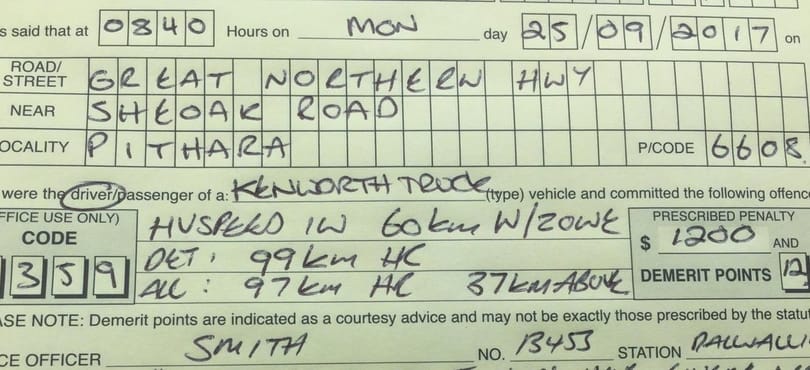 s said that at 0840 Hours on MON day 25/09/2017 on
ROAD/STREET GREAT NORTHERN HWY
NEAR SHEOAK ROAD
OCALITY PITHARA P/CODE 6608
were the driver/passenger of a: KENWORTH TRUCK (type) vehicle and committed the following offenc
FFICE USE ONLY) CODE 359
HVSPEED IN 60km W/ZONE
DET: 99km HR
ALL: 97km HR 37KM ABOVE
PRESCRIBED PENALTY
$ 1200 AND
DEMERIT POINTS 12
ASE NOTE: Demerit points are indicated as a courtesy advice and may not be exactly those prescribed by the statut
CE OFFICER SMITH NO. 13453 STATION DALWALLI